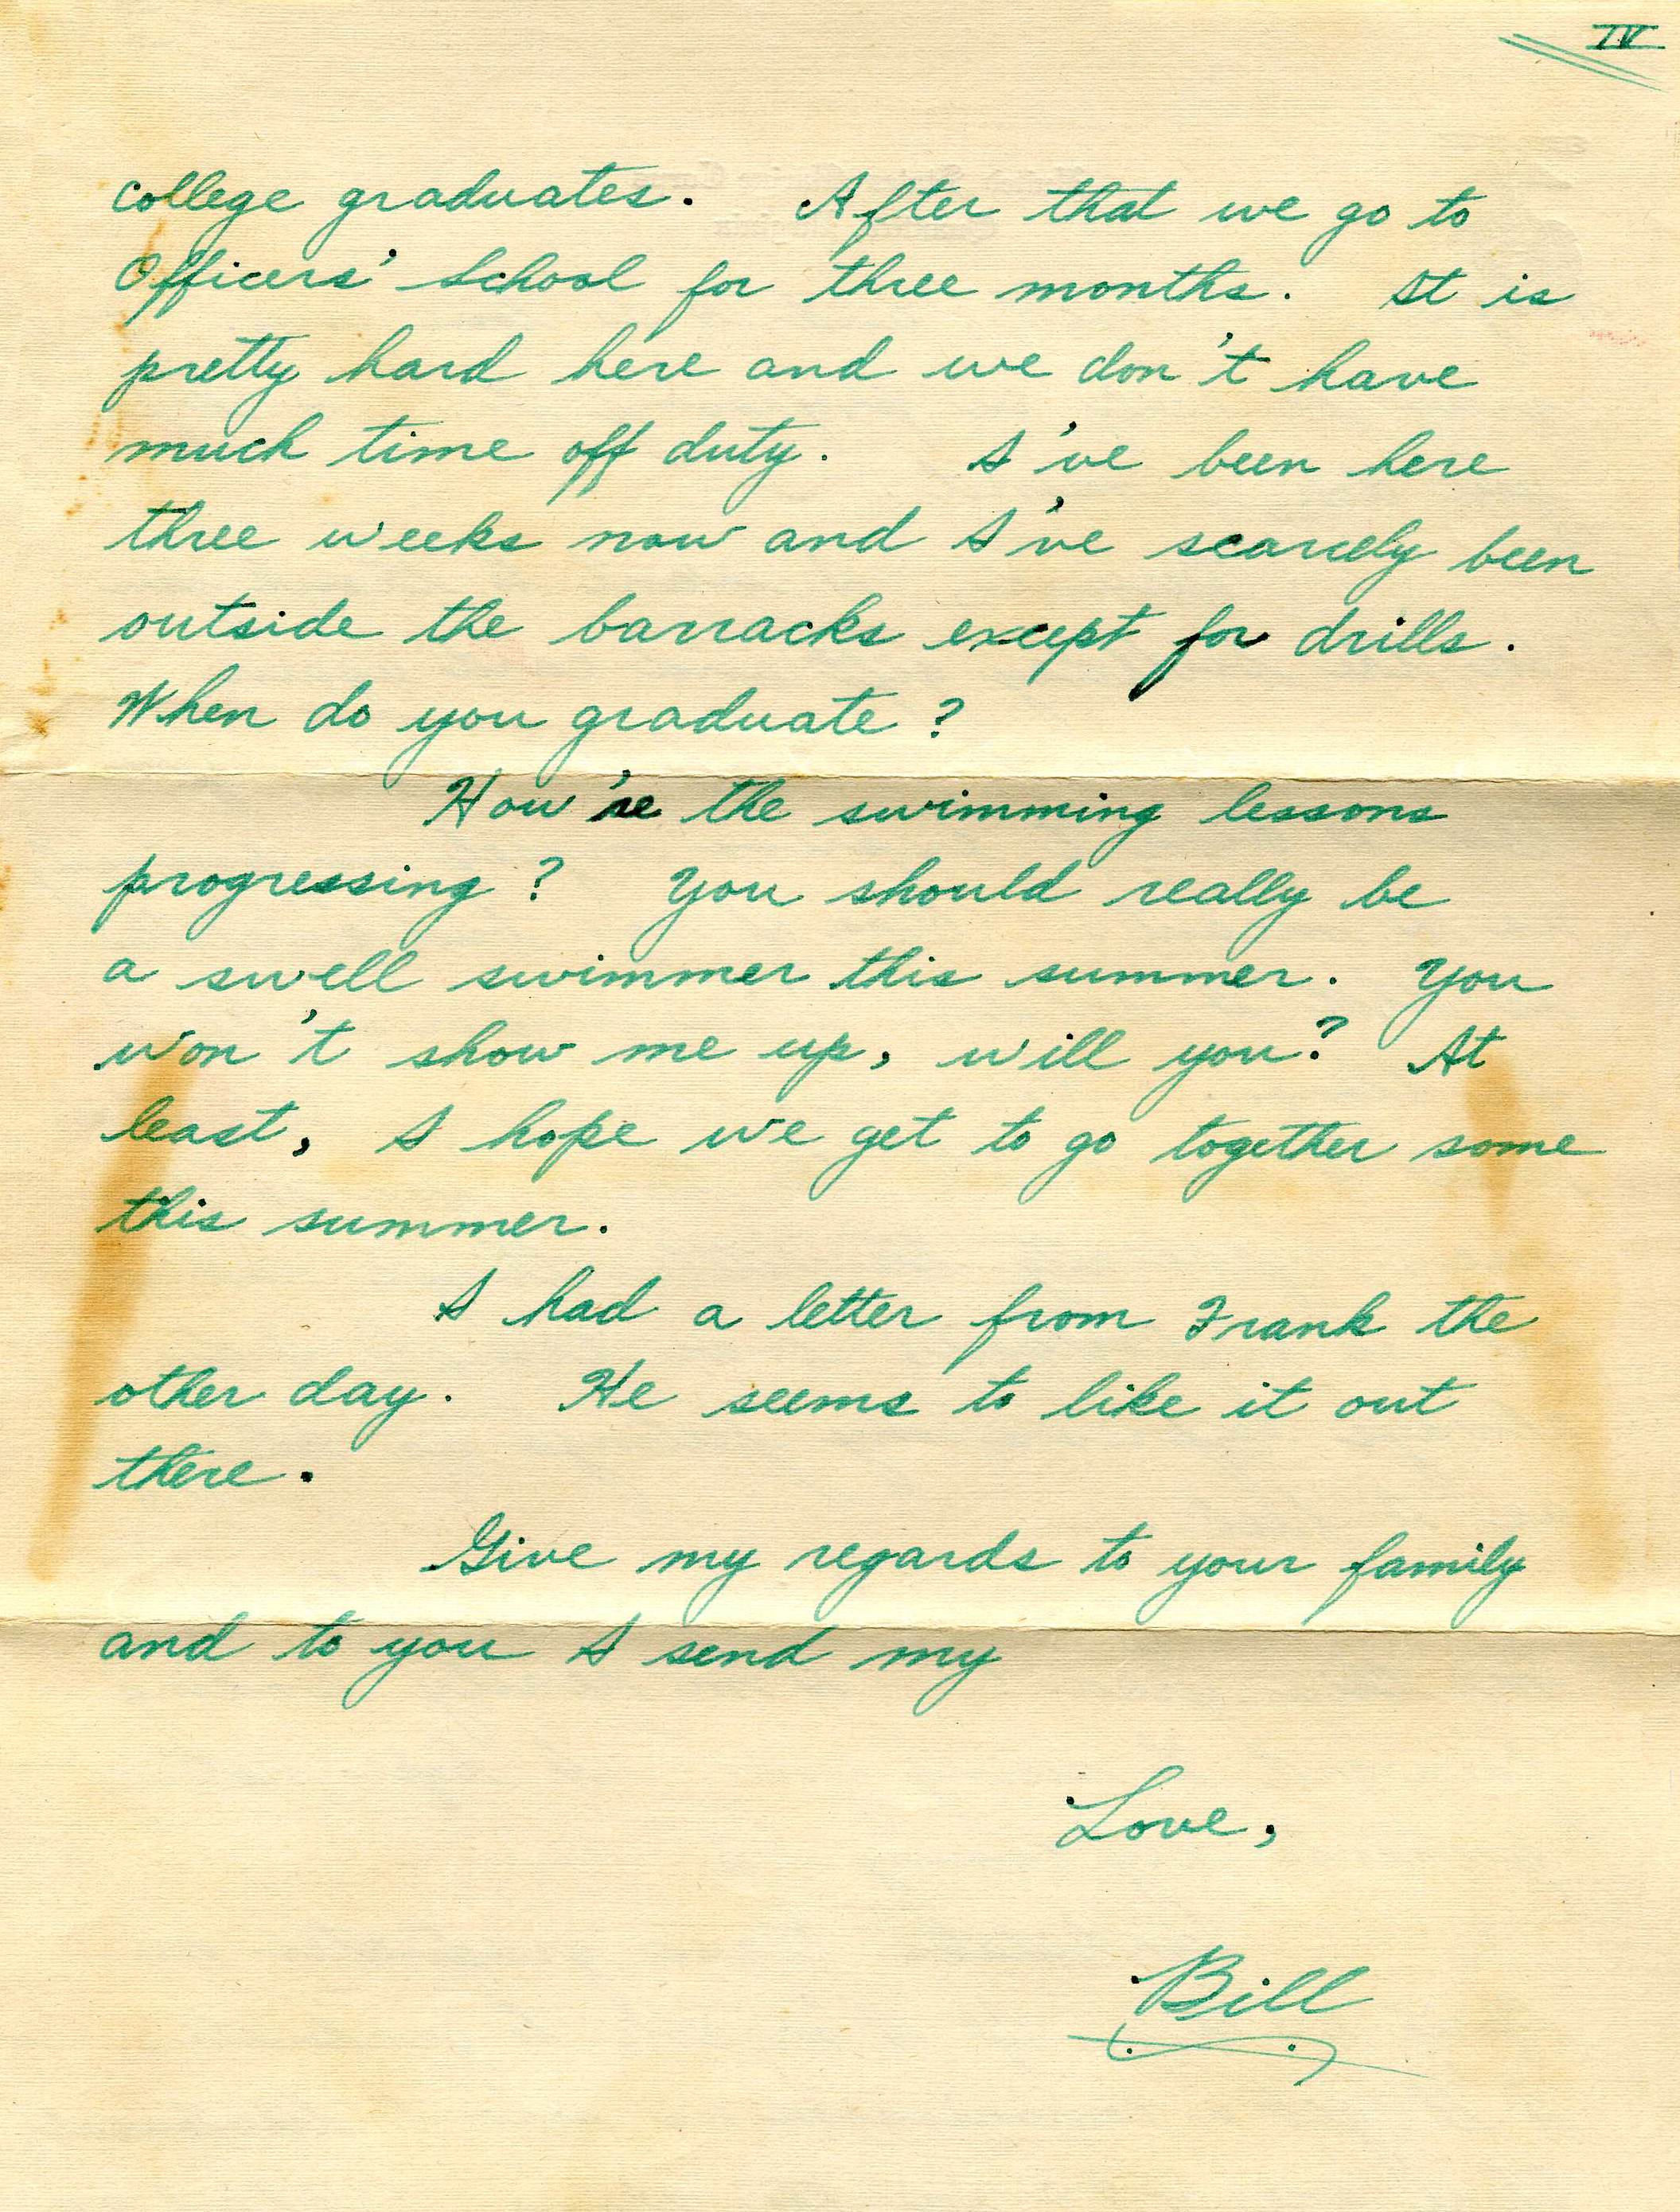 IV
college graduates. After that we go to
Officers' School for three months. It is
pretty hard here and we don't have
much time off duty. I've been here
three weeks now and I've scarcely been
outside the barracks except for drills.
When do you graduate?
How're the swimming lessons
progressing? You should really be
a swell swimmer this summer. You
won't show me up, will you? At
least, I hope we get to go together some
this summer.
I had a letter from Frank the
other day. He seems to like it out
there.
Give my regards to your family
and to you I send my
Love,
Bill